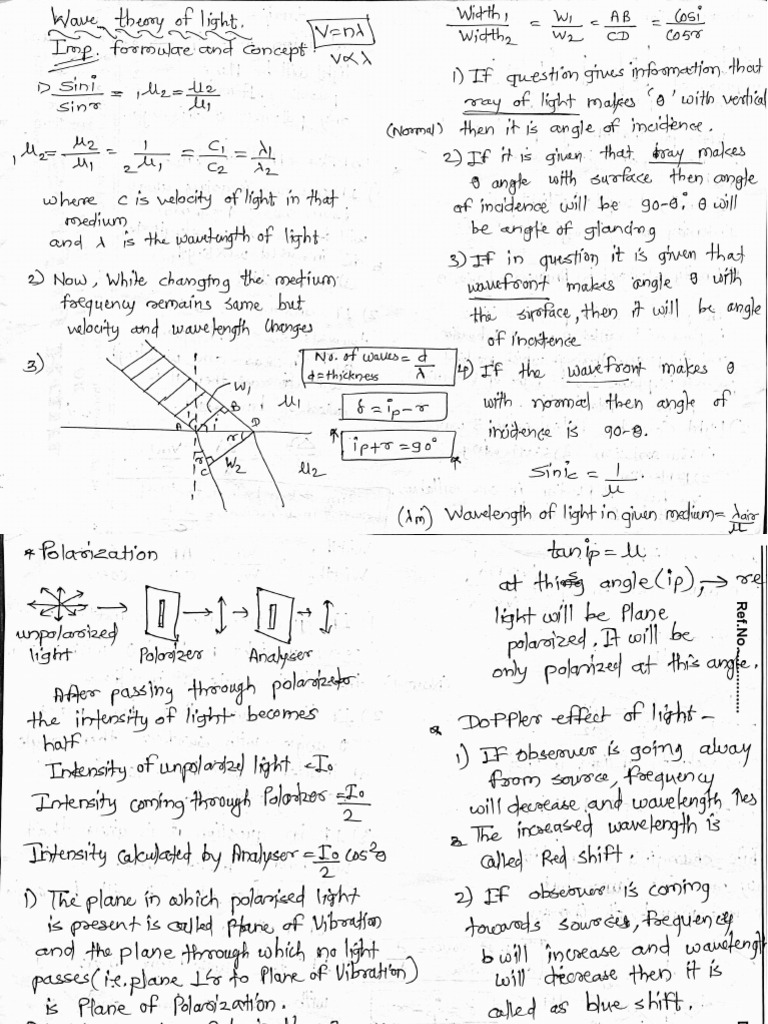 Wave theory of light.
Imp. formulae and concept
V=nλ
V∝λ
1) Sini/Sinr = ₁μ₂ = μ₂/μ₁
₁μ₂ = μ₂/μ₁ = 1/₂μ₁ = C₁/C₂ = λ₁/λ₂
where C is velocity of light in that
medium
and λ is the wavelength of light
2) Now, While changing the medium
frequency remains same but
velocity and wavelength changes
3)
W₁
B
i
A
D
r
r
C
W₂
μ₁
μ₂
No. of waves = d/λ
d=thickness
δ = ip-r
ip+r = 90°
Width₁/Width₂ = W₁/W₂ = AB/CD = Cosi/Cosr
1) If question gives information that
ray of light makes 'θ' with vertical
(Normal) then it is angle of incidence.
2) If it is given that ray makes
θ angle with surface then angle
of incidence will be 90-θ. θ will
be angle of glancing
3) If in question it is given that
wavefront makes angle θ with
the surface, then it will be angle
of incidence
4) If the wavefront makes θ
with normal then angle of
incidence is 90-θ.
Sinic = 1/μ.
(λm) Wavelength of light in given medium = λair/μ
* Polarization
unpolarized
light
Polorizer
Analyser
After passing through polarizer
the intensity of light becomes
half
Intensity of unpolarized light = I₀
Intensity coming through Polarizer = I₀/2
Intensity Calculated by Analyser = I₀/2 cos²θ
1) The plane in which polarised light
is present is called Plane of Vibration
and the plane through which no light
passes (i.e. plane ⊥r to Plane of Vibration)
is Plane of Polarization.
tanip = μ
at this angle (ip), → re
light will be Plane
polarized. It will be
only polarized at this angle.
Ref.No.
* Doppler effect of light -
1) If observer is going away
from source, frequency
will decrease and wavelength ↑es
& The increased wavelength is
called Red shift.
2) If observer is coming
towards sources, frequency
will increase and wavelength
will decrease then it is
called as blue shift.